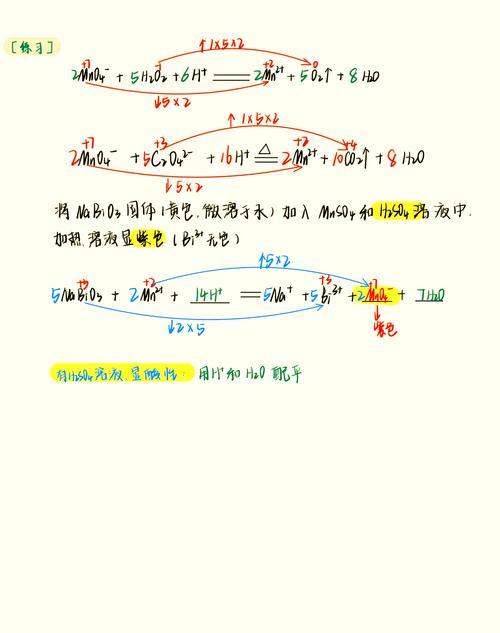 [练习]
↑1×5×2
+7 -1 +2 0
2MnO₄⁻ + 5H₂O₂ + 6H⁺ ═══ 2Mn²⁺ + 5O₂↑ + 8H₂O
↓5×2
↑1×5×2
+7 +3 △ +2 +4
2MnO₄⁻ + 5C₂O₄²⁻ + 16H⁺ ═══ 2Mn²⁺ + 10CO₂↑ + 8H₂O
↓5×2
将NaBiO₃固体(黄色,微溶于水)加入MnSO₄和H₂SO₄溶液中.
加热.溶液显紫色(Bi³⁺无色)
↑5×2
+5 +2 +3 +7
5NaBiO₃ + 2Mn²⁺ + 14H⁺ ═══ 5Na⁺ + 5Bi³⁺ + 2MnO₄⁻ + 7H₂O
↓2×5
紫色
有H₂SO₄溶液.显酸性: 用H⁺和H₂O配平